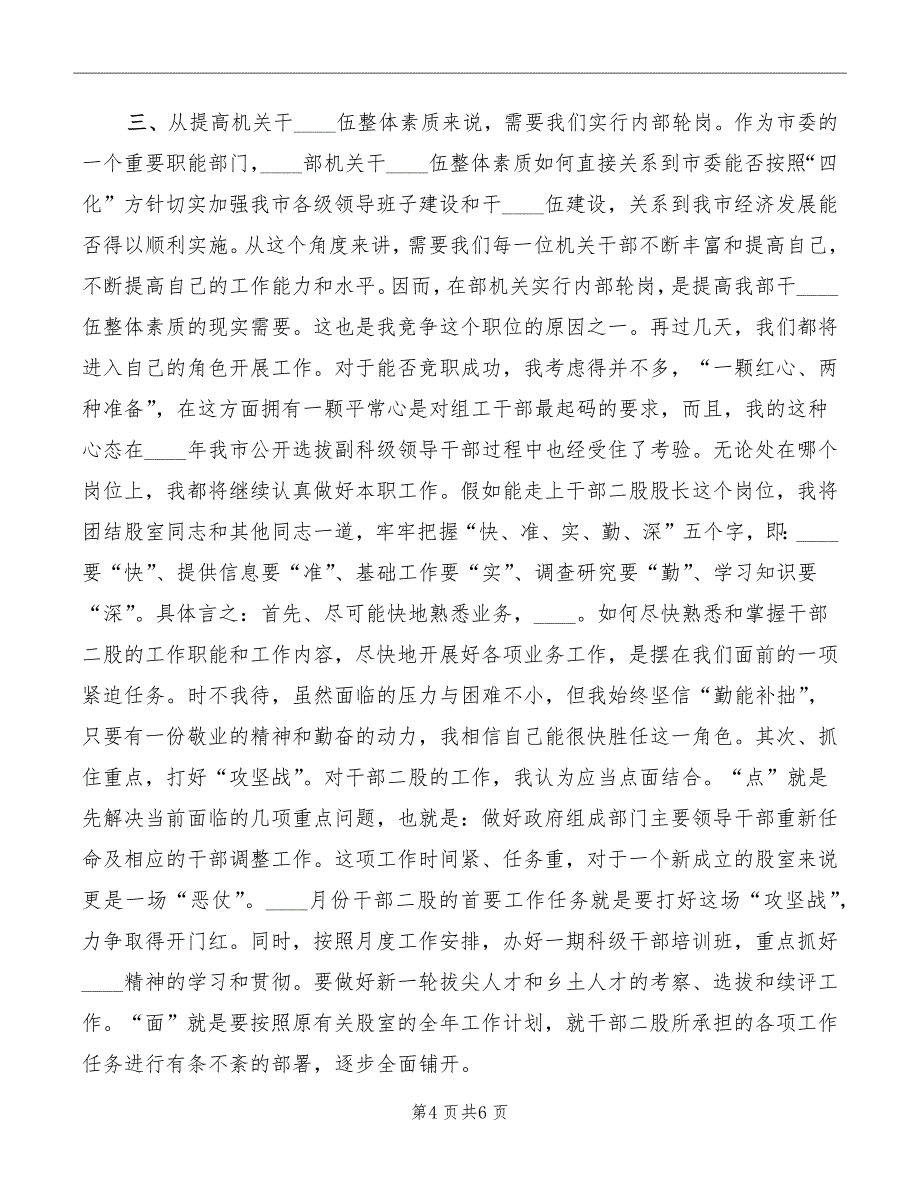 三、从提高机关干____伍整体素质来说，需要我们实行内部轮岗。作为市委的
一个重要职能部门，____部机关干____伍整体素质如何直接关系到市委能否按照“四
化”方针切实加强我市各级领导班子建设和干____伍建设，关系到我市经济发展能
否得以顺利实施。从这个角度来讲，需要我们每一位机关干部不断丰富和提高自己，
不断提高自己的工作能力和水平。因而，在部机关实行内部轮岗，是提高我部干____
伍整体素质的现实需要。这也是我竞争这个职位的原因之一。再过几天，我们都将
进入自己的角色开展工作。对于能否竞职成功，我考虑得并不多，“一颗红心、两
种准备”，在这方面拥有一颗平常心是对组工干部最起码的要求，而且，我的这种
心态在____年我市公开选拔副科级领导干部过程中也经受住了考验。无论处在哪个
岗位上，我都将继续认真做好本职工作。假如能走上干部二股股长这个岗位，我将
团结股室同志和其他同志一道，牢牢把握“快、准、实、勤、深”五个字，即：____
要“快”、提供信息要“准”、基础工作要“实”、调查研究要“勤”、学习知识要
“深”。具体言之：首先、尽可能快地熟悉业务，____。如何尽快熟悉和掌握干部
二股的工作职能和工作内容，尽快地开展好各项业务工作，是摆在我们面前的一项
紧迫任务。时不我待，虽然面临的压力与困难不小，但我始终坚信“勤能补拙”，
只要有一份敬业的精神和勤奋的动力，我相信自己能很快胜任这一角色。其次、抓
住重点，打好“攻坚战”。对干部二股的工作，我认为应当点面结合。“点”就是
先解决当前面临的几项重点问题，也就是：做好政府组成部门主要领导干部重新任
命及相应的干部调整工作。这项工作时间紧、任务重，对于一个新成立的股室来说
更是一场“恶仗”。____月份干部二股的首要工作任务就是要打好这场“攻坚战”，
力争取得开门红。同时，按照月度工作安排，办好一期科级干部培训班，重点抓好
____精神的学习和贯彻。要做好新一轮拔尖人才和乡土人才的考察、选拔和续评工
作。“面”就是要按照原有关股室的全年工作计划，就干部二股所承担的各项工作
任务进行有条不紊的部署，逐步全面铺开。
第4 页共6 页